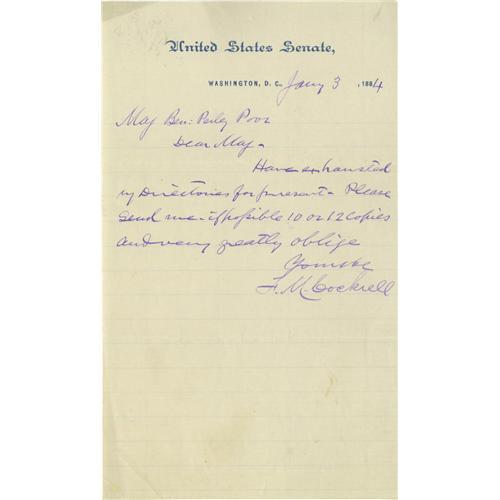 United States Senate,
WASHINGTON, D. C. Jany 3, 1884
Maj Ben: Perley Poor
Dear Maj.
Have exhausted
my Directories for present. Please
send me if possible 10 or 12 copies
and very greatly oblige
Yours &c
F. M. Cockrell